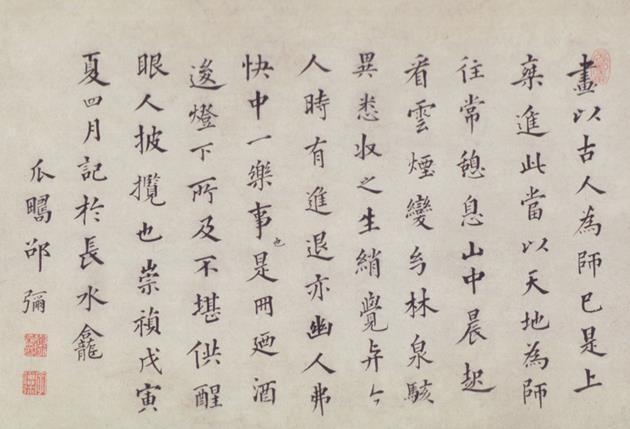 畫以古人為師已是上
椉進此當以天地為師
往常憩息山中晨起
看雲煙變幻林泉駭
異悉収之生綃覺与今
人時有進退亦幽人弗
快中一樂事也是冊廼酒
逡燈下所及不堪供醒
眼人披攬也崇禎戊寅
夏四月記於長水龕
瓜疇邵彌